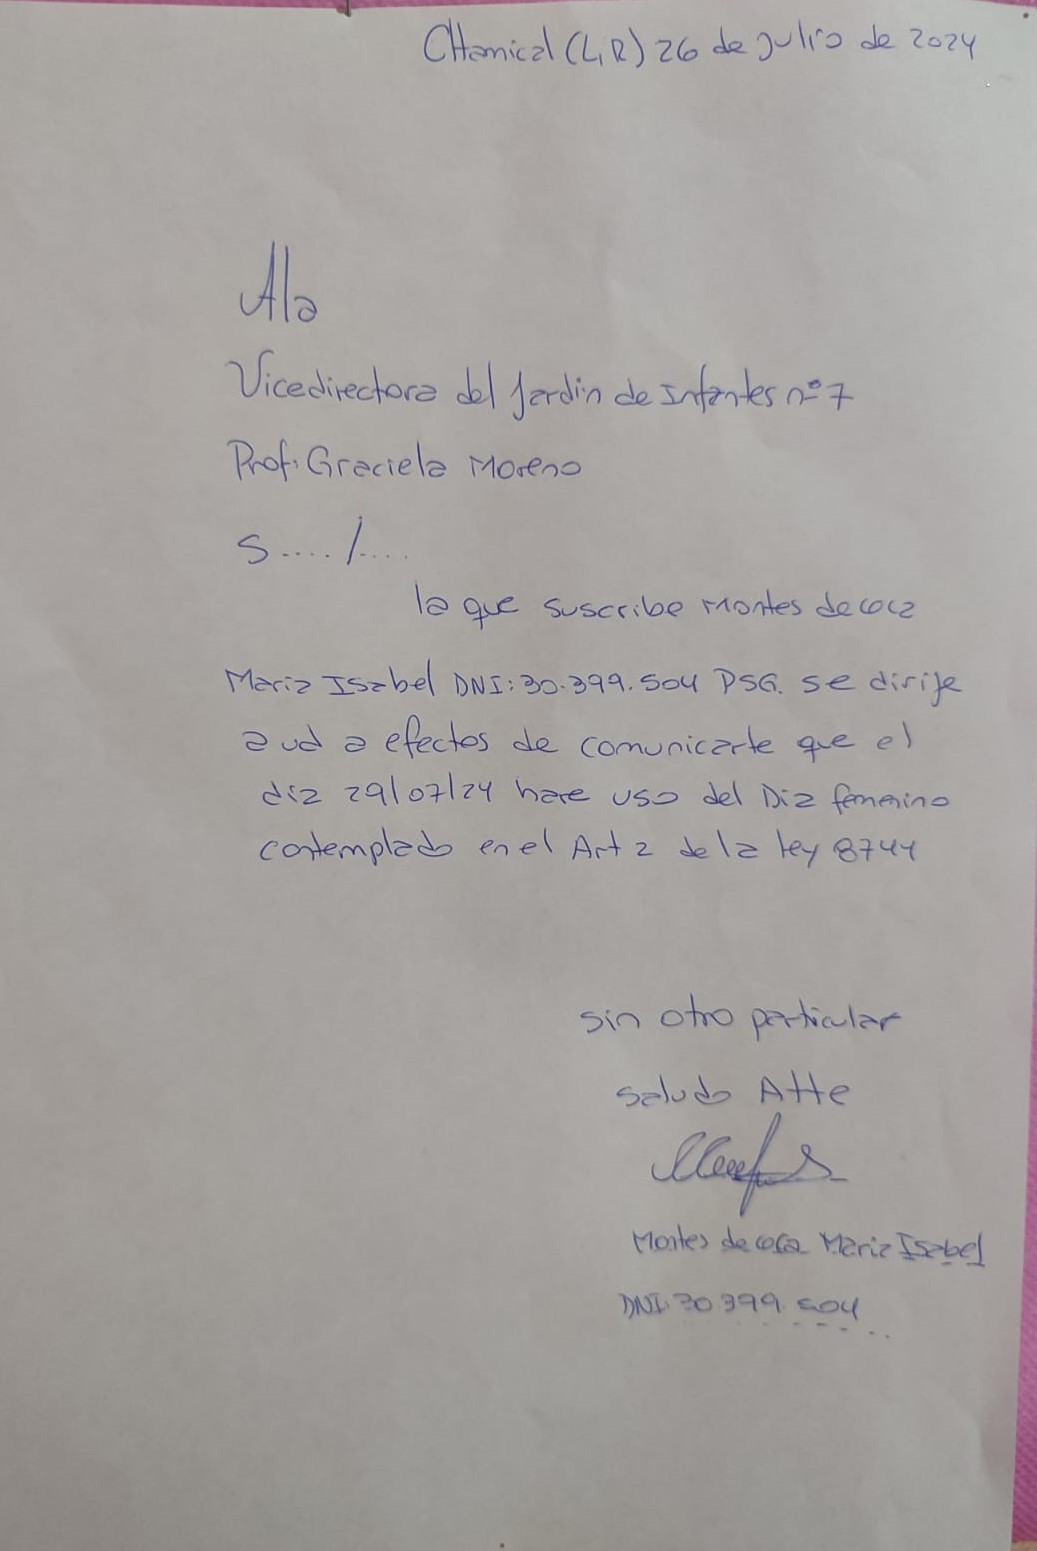 CHamical (L,R) 26 de Julio de 2024
A la
Vicedirectora del Jardin de Infantes nº 7
Prof: Graciela Moreno
S..../....
la que suscribe Montes de oca
Maria Isabel DNI: 30.399.504 PSG. se dirije
a ud a efectos de comunicarle que el
dia 29/07/24 hare uso del Dia femenino
contemplado en el Art 2 de la ley 8744
sin otro particular
saludo Atte
Montes de oca Maria Isabel
DNI: 30.399.504